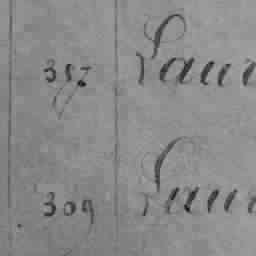 357 Laur
309 Laur